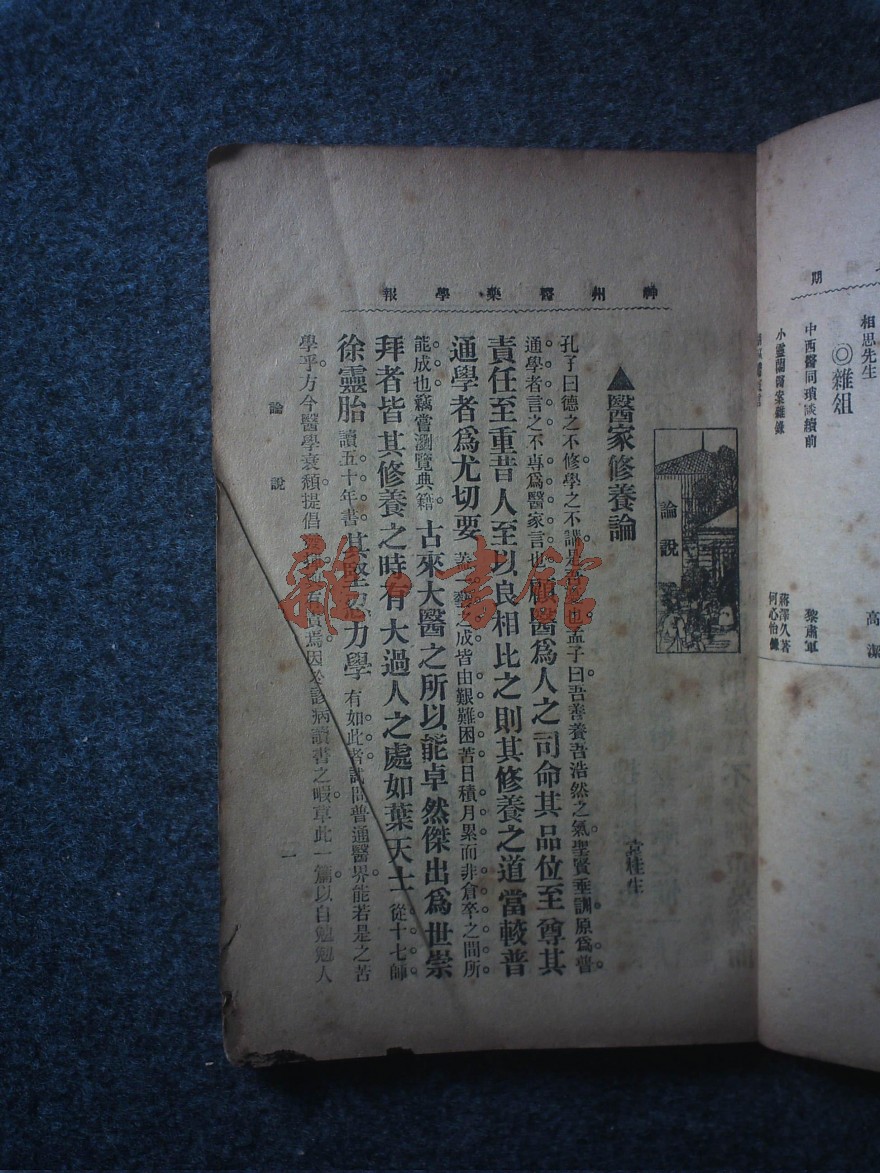 期
相思先生
高潔
◎雜俎
中西醫同瑣談續前
黎肅軍
小靈蘭醫案雜錄
蔣澤久著
何心怡錄
神州醫藥學報
論說
▲醫家修養論
桂生
孔子曰德之不修學之不講是吾憂也孟子曰吾善養吾浩然之氣聖賢垂訓原爲普
通學者言之不專爲醫家言也顧醫爲人之司命其品位至尊其
責任至重昔人至以良相比之則其修養之道當較普
通學者爲尤切要 之成皆由艱難困苦日積月累而非倉卒之間所
能成也竊嘗瀏覽典籍古來大醫之所以能卓然傑出爲世崇
拜者皆其修養之時有大過人之處如葉天士從十七師
徐靈胎讀五十年書其堅力學有如此者試問普通醫界能若是之苦
學乎方今醫學衰頹提倡 有責焉因於診病讀書之暇草此一篇以自勉勉人
論說
一
雜·書館